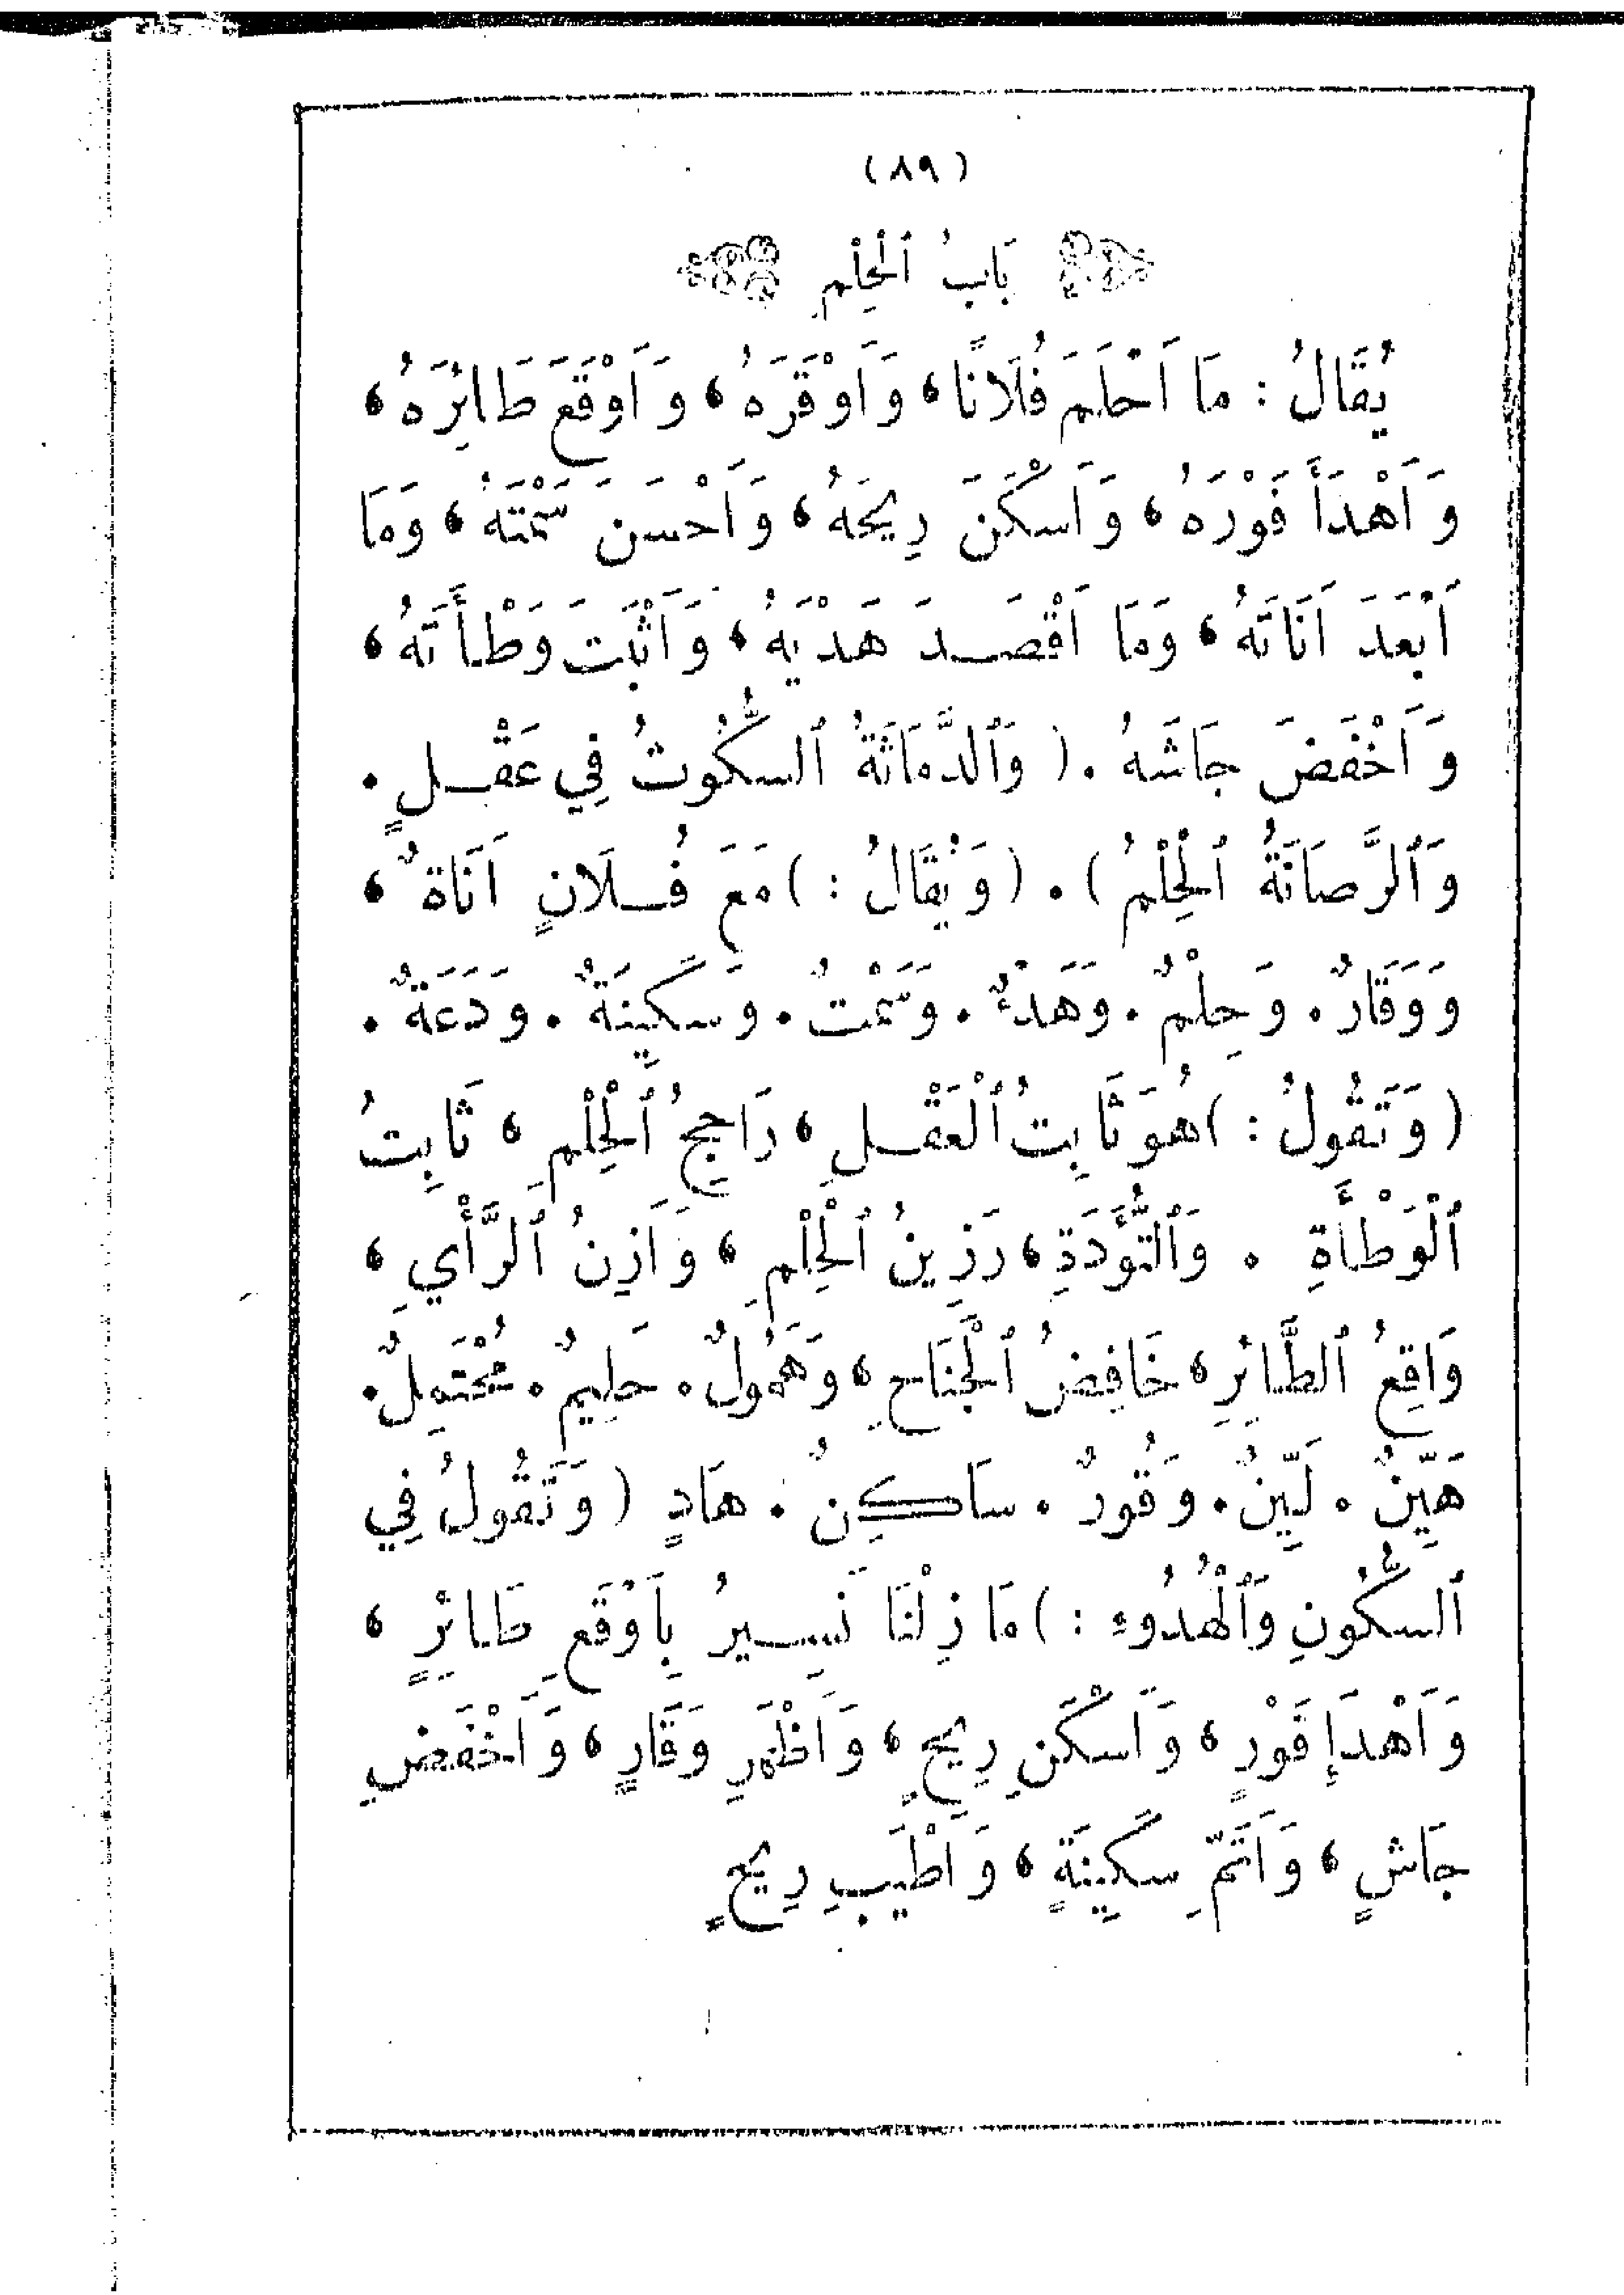 (٨٩)
بَابُ ٱلْحِلْمِ
يُقَالُ : مَا اَحْلَمَ فُلَانًا ، وَاَوْقَرَهُ ، وَاَوْقَعَ طَائِرَهُ ،
وَاَهْدَأَ فَوْرَهُ ، وَاَسْكَنَ رِيحَهُ ، وَاَحْسَنَ سَمْتَهُ ، وَمَا
اَبْعَدَ اَنَاتَهُ ، وَمَا اَقْصَدَ هَدْيَهُ ، وَاَثْبَتَ وَطْأَتَهُ ،
وَاَخْفَضَ جَاشَهُ . ( وَٱلدَّمَاثَةُ ٱلسُّكُوتُ فِي عَقْلٍ .
وَٱلرَّصَانَةُ ٱلْحِلْمُ ) . ( وَيُقَالُ : ) مَعَ فُلَانٍ اَنَاةٌ ،
وَوَقَارٌ . وَحِلْمٌ . وَهَدْءٌ . وَسَمْتٌ . وَسَكِينَةٌ . وَدَعَةٌ .
( وَتَقُولُ : ) هُوَ ثَابِتُ ٱلْعَقْلِ ، رَاجِحُ ٱلْحِلْمِ ، ثَابِتُ
ٱلْوَطْأَةِ . وَٱلتُّؤَدَةِ ، رَزِينُ ٱلْحِلْمِ ، وَازِنُ ٱلرَّأْيِ ،
وَاقِعُ ٱلطَّائِرِ ، خَافِضُ ٱلْجَنَاحِ ، وَهَمُولٌ . حَلِيمٌ . مُحْتَمِلٌ .
هَيِّنٌ . لَيِّنٌ . وَقُورٌ . سَاكِنٌ . هَادٍ ( وَتَقُولُ فِي
ٱلسُّكُونِ وَٱلْهُدُوءِ : ) مَا زِلْنَا نَسِيرُ بِاَوْقَعِ طَائِرٍ ،
وَاَهْدَإِ فَوْرٍ ، وَاَسْكَنِ رِيحٍ ، وَاَظْهَرِ وَقَارٍ ، وَاَخْفَضِ
جَاشٍ ، وَاَتَمِّ سَكِينَةٍ ، وَاَطْيَبِ رِيحٍ